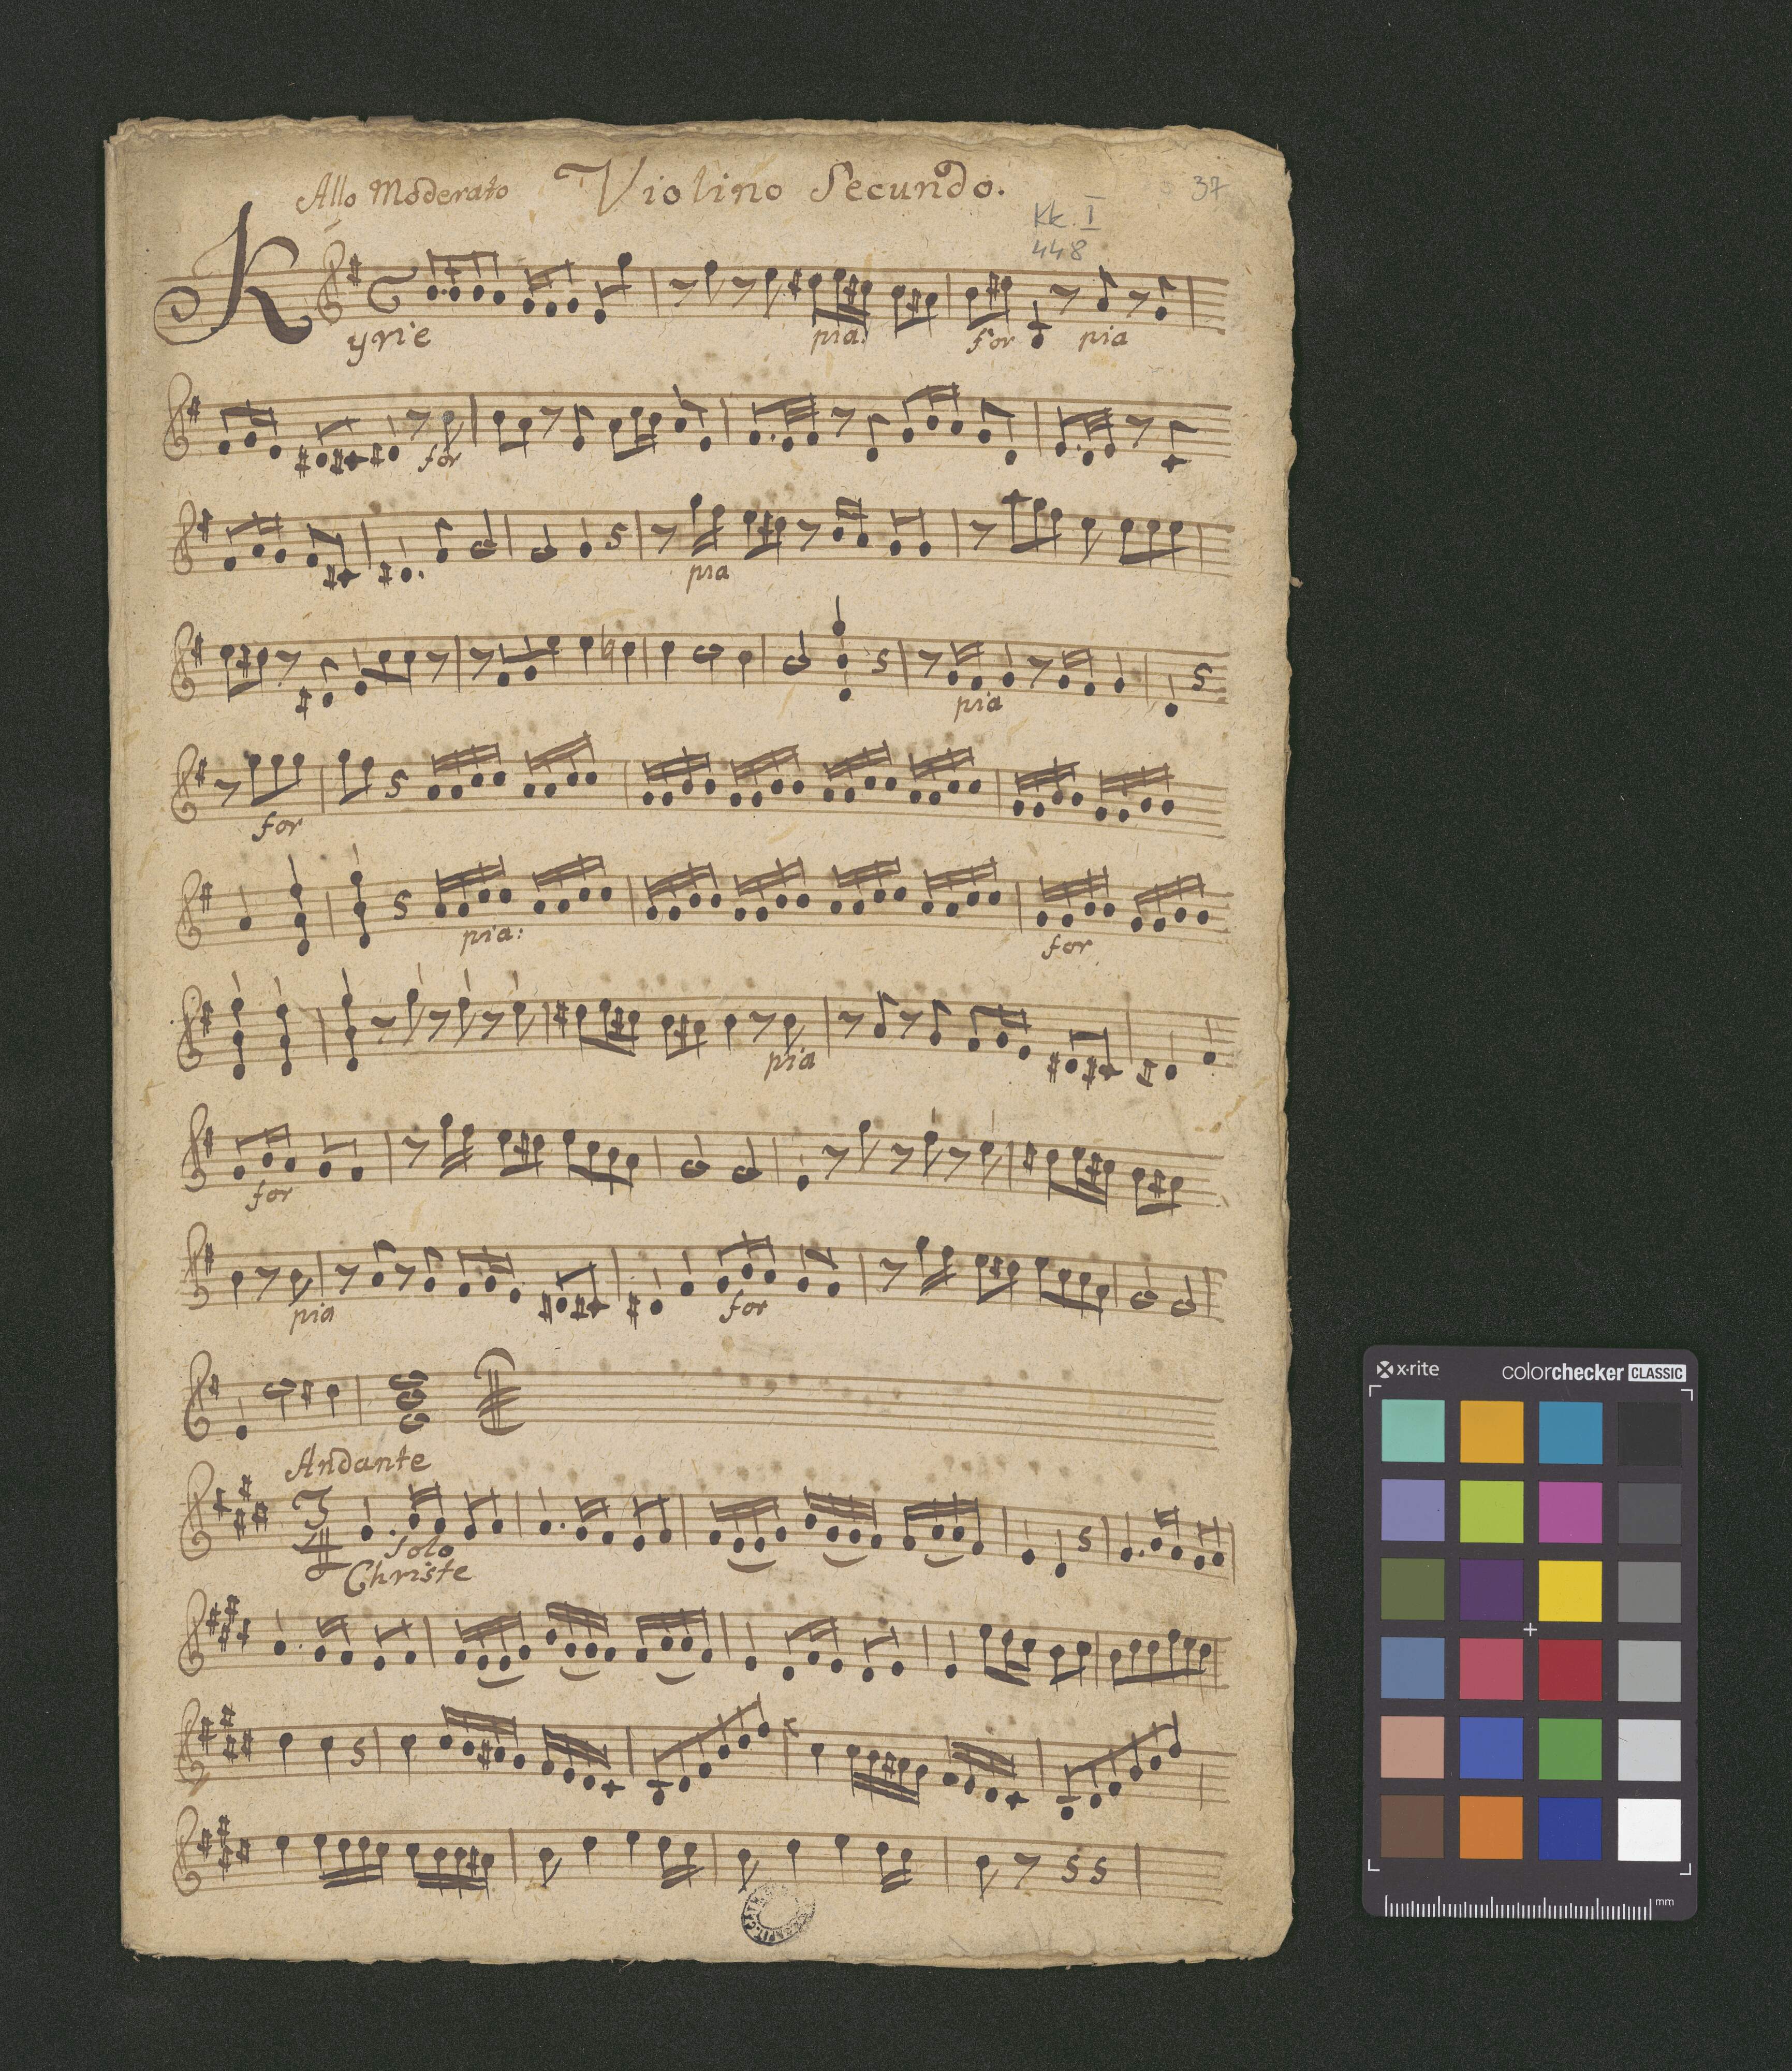 Allo Moderato Violino Secundo. 37
Kk. I
448
Kyrie pia: for pia
for
pia
pia
for
pia: for
pia
for
pia for
Andante
3
4
Solo
Christe
x-rite colorchecker CLASSIC
mm